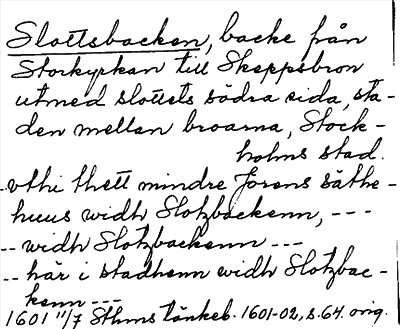 Slottsbacken, backe från
Storkyrkan till Skeppsbron
utmed slottets södra sida, sta-
den mellan broarna, Stock-
holms stad.
--vthi thett mindre Jörens säthe-
huus widh Slotzbackenn, ---
-- widh Slotzbackenn ---
-- här i stadhenn widh Slotzbac-
kenn ---
1601 11/7 Sthms tänkeb. 1601-02, s. 64. orig.